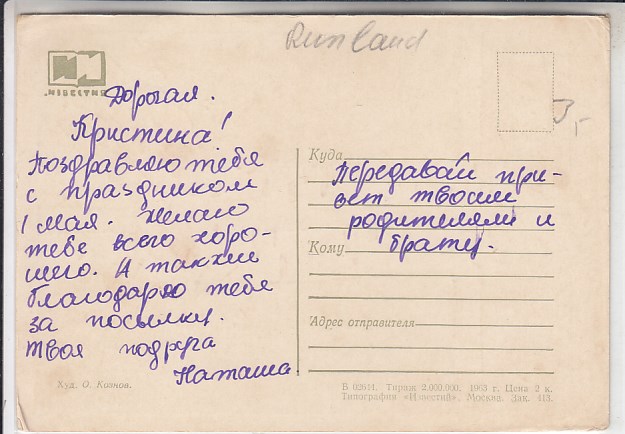 Russland
ИЗВЕСТИЯ
3,-
Дорогая.
Кристина!
Поздравляю тебя
с праздником
1 мая. Желаю
тебе всего хоро-
шего. А также
благодарю тебе
за посылку.
Твоя подруга
Наташа
Куда
Передавай при-
вет твоим
родителям и
Кому
брату.
Адрес отправителя
Худ. О. Козлов.
Б 02614. Тираж 2.000.000. 1963 г. Цена 2 к.
Типография «Известий». Москва. Зак. 413.